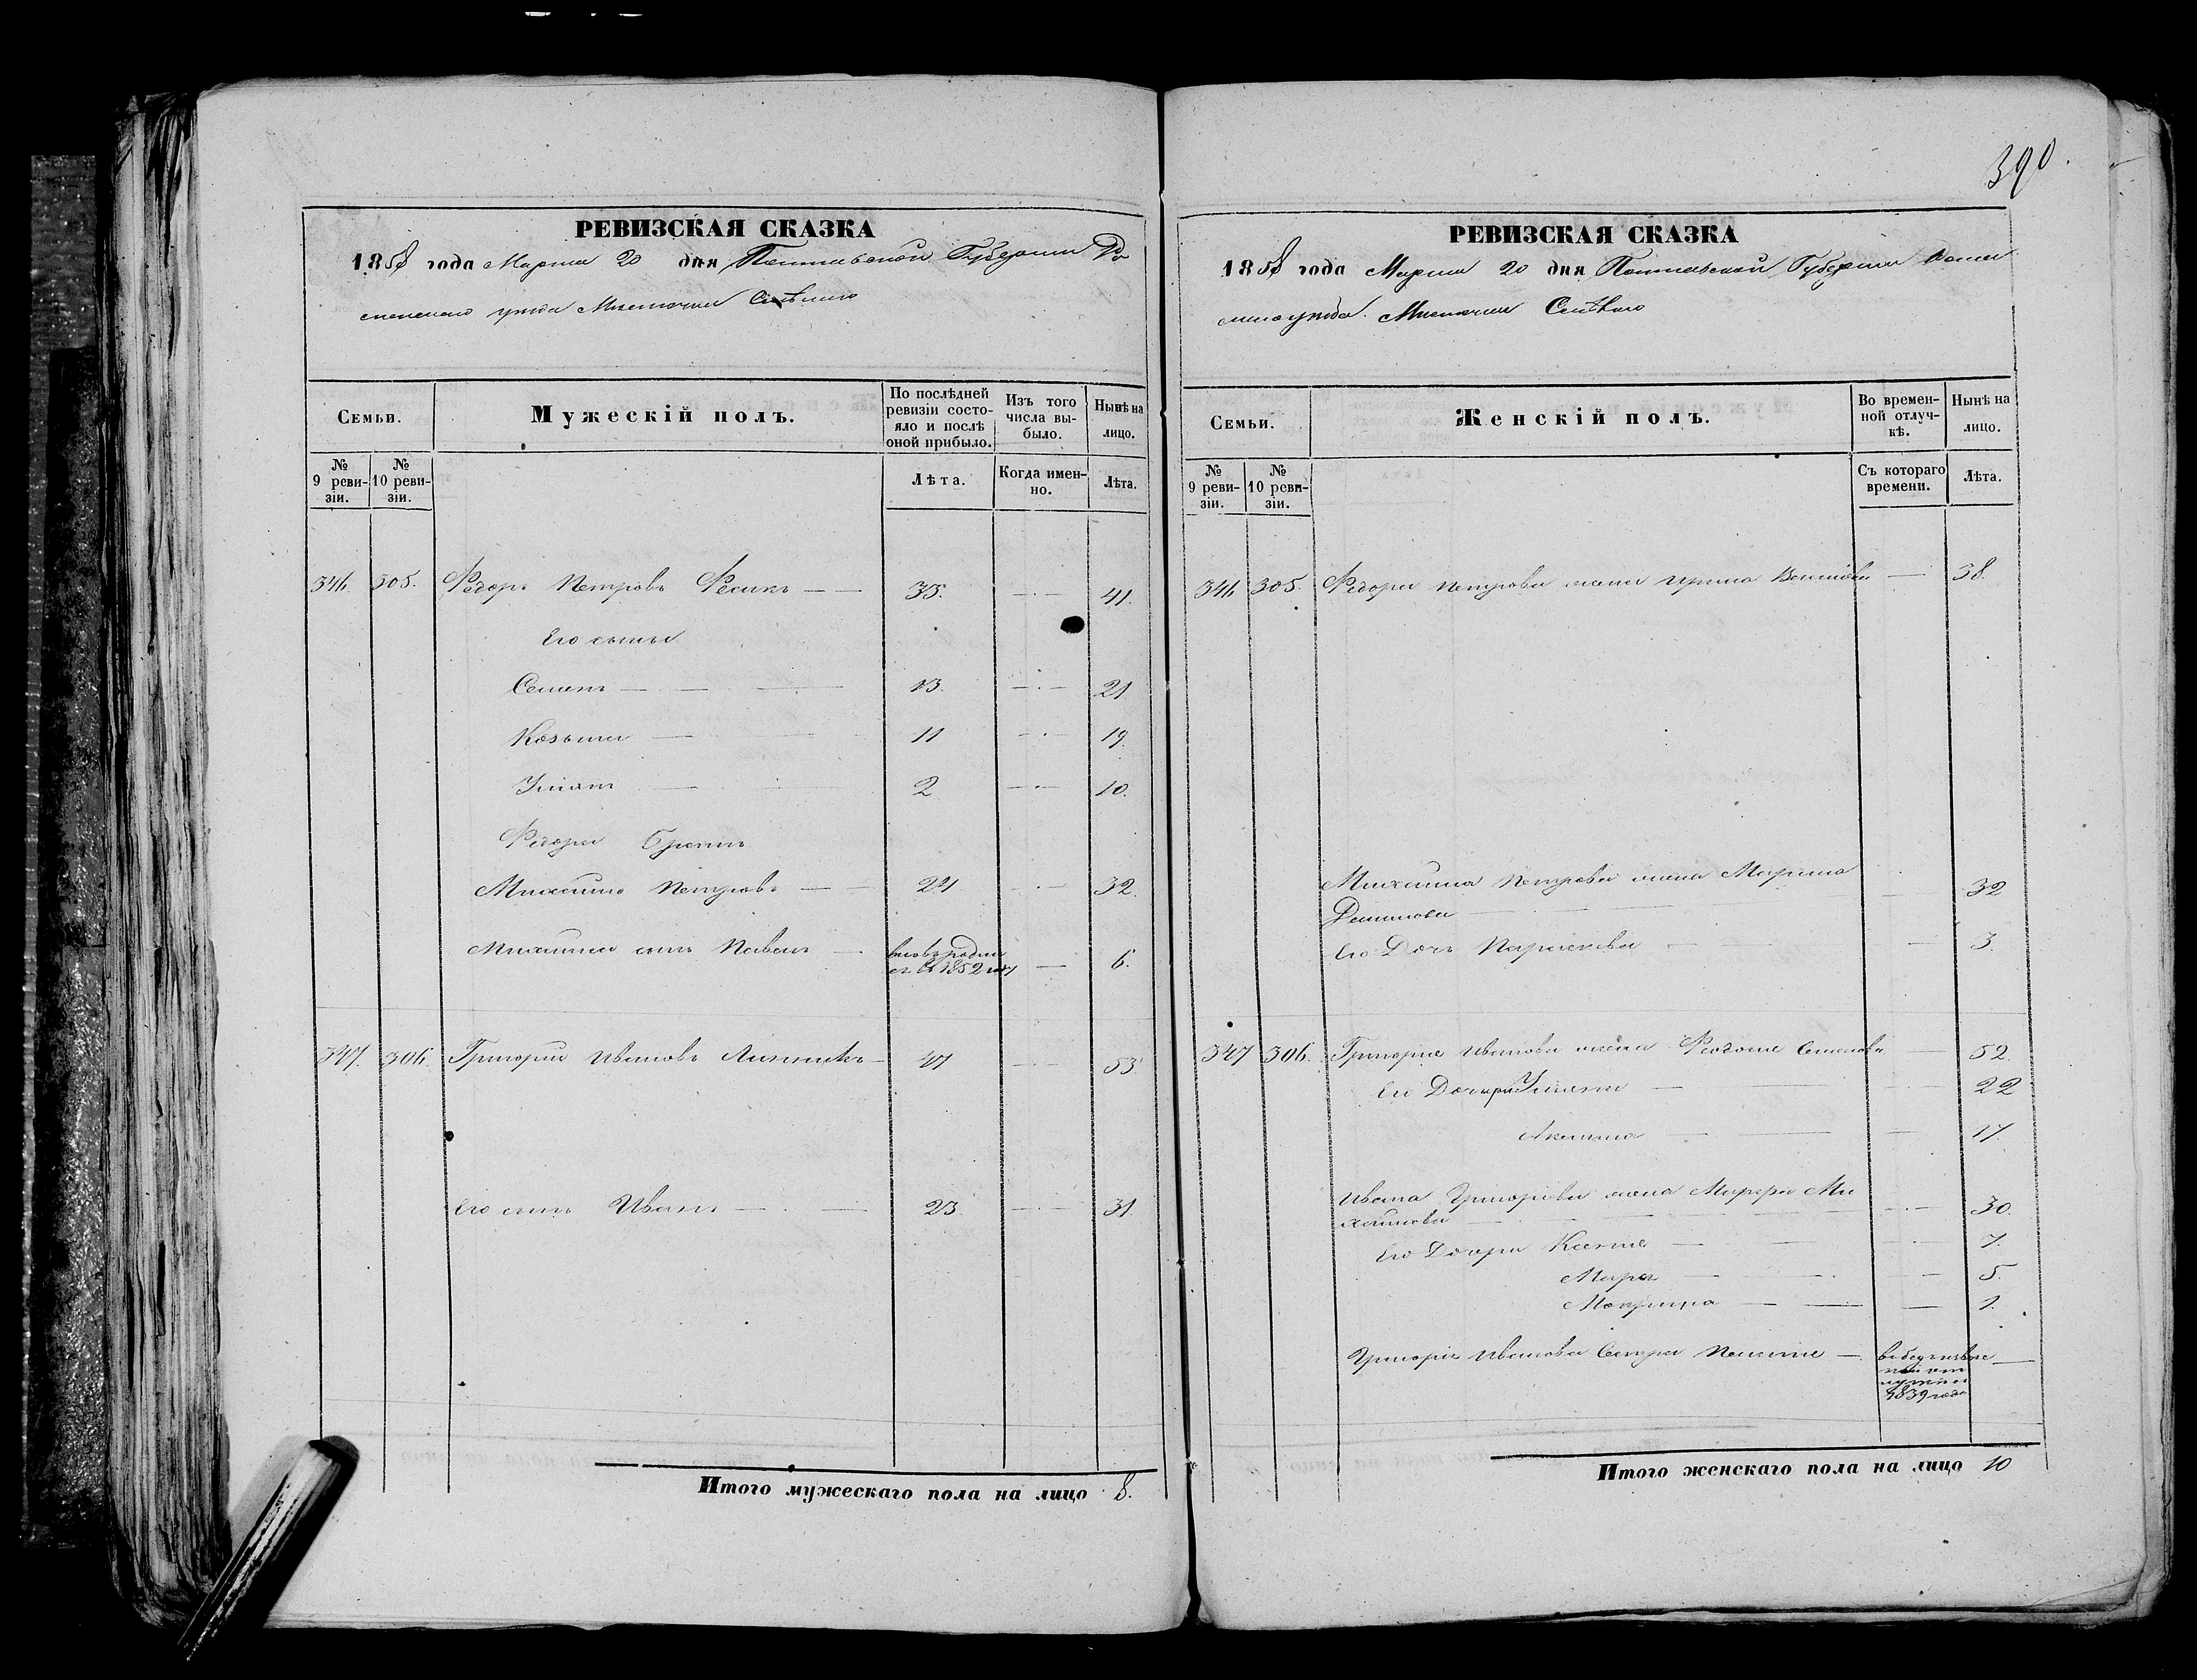 390.
РЕВИЗСКАЯ СКАЗКА
1858 года Марта 20 дня Полтавской Губернии Ро
менскаго уезда Местечка Смѣлаго
Семьи.
Мужескій полъ.
По послѣдней ревизіи состояло и послѣ оной прибыло.
Изъ того числа выбыло.
Нынѣ на лицо.
№ 9 ревизіи.
№ 10 ревизіи.
Лѣта.
Когда именно.
Лѣта.
346. 305. Федоръ Петровъ 35. 41.
Его сыны
Семенъ 13. 21.
Козьма 11 19.
Игнатъ 2 10.
Федора братъ
Михаило Петровъ 24 32.
Михаила сынъ Павелъ вновь родил
ся въ 1852 году 6.
347. 306. Григорій Ивановъ Линникъ 47 53
Его сынъ Иванъ 23 31.
Итого мужескаго пола на лицо 8.
РЕВИЗСКАЯ СКАЗКА
1858 года Марта 20 дня Полтавской Губернии Роменскаго уезда. Местечка Смѣлаго
Семьи.
Женскій полъ.
Во временной отлучкѣ.
Нынѣ на лицо.
№ 9 ревизіи.
№ 10 ревизіи.
Съ котораго времени.
Лѣта.
346 305. Федора Петрова жена Ирина 38.
Михаила Петрова жена Марина
32
Его Дочь Параскева 3.
347 306. Григорія Иванова жена Феодосія Семенова 52.
Его Дочери Ульяна 22
Акелина 17.
Ивана Григорьева жена Марфа Ми
хайлова 30.
Его Дочери Ксенія 7.
Марфа 5.
1.
Григорія Иванова Сестра
1839 года
Итого женскаго пола на лицо 10